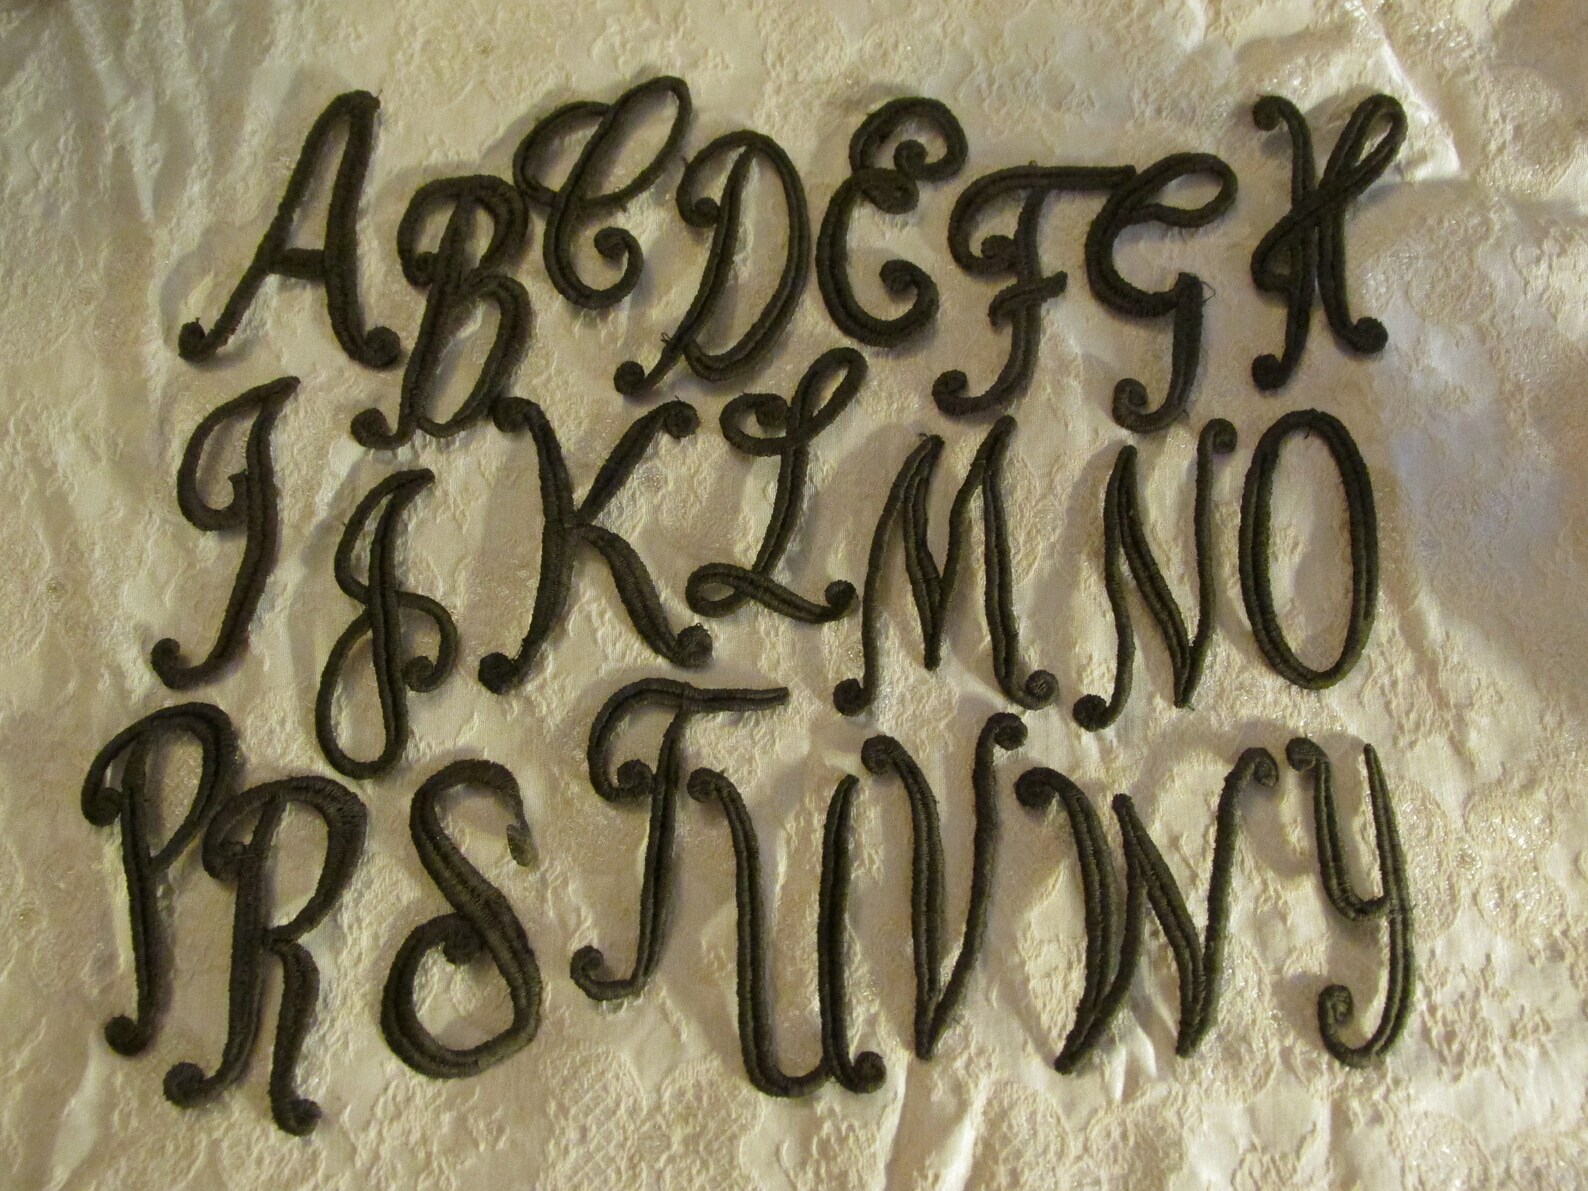 A B C D E F G H
I J K L M N O
P R S T U V W Y